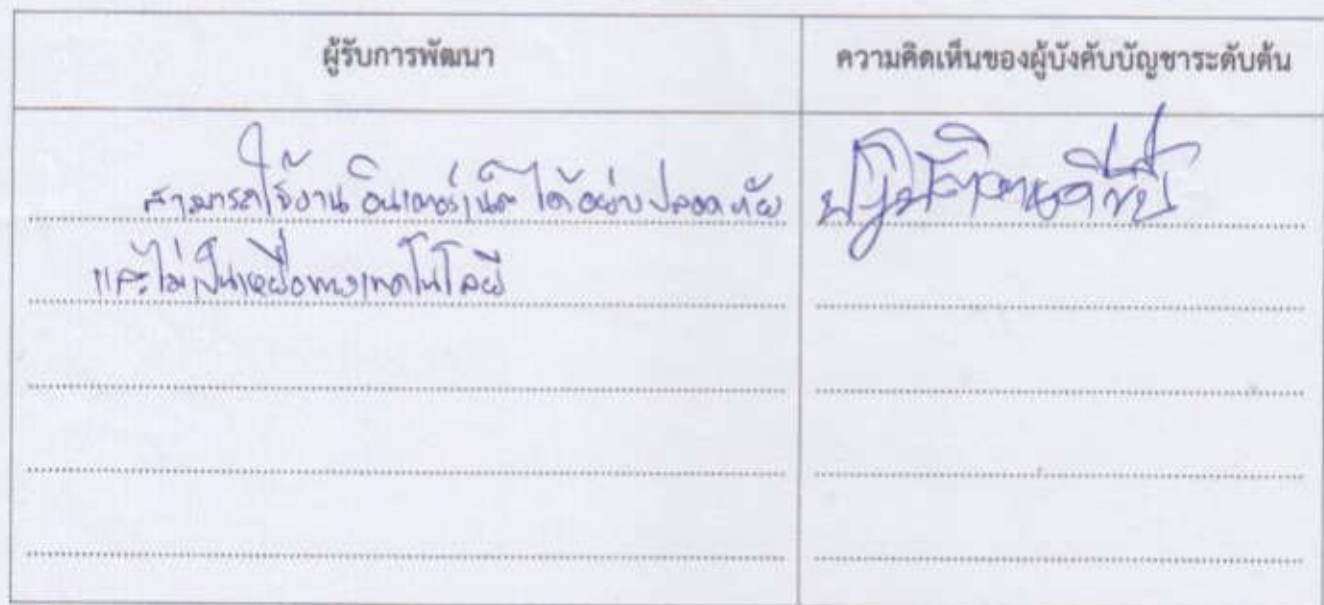 ผู้รับการพัฒนา
ความคิดเห็นของผู้บังคับบัญชาระดับต้น
สามารถใช้งานอินเตอร์เน็ตได้อย่างปลอดภัย
และไม่เป็นเหยื่อทางเทคโนโลยี
ปฏิบัติงานดีขึ้น